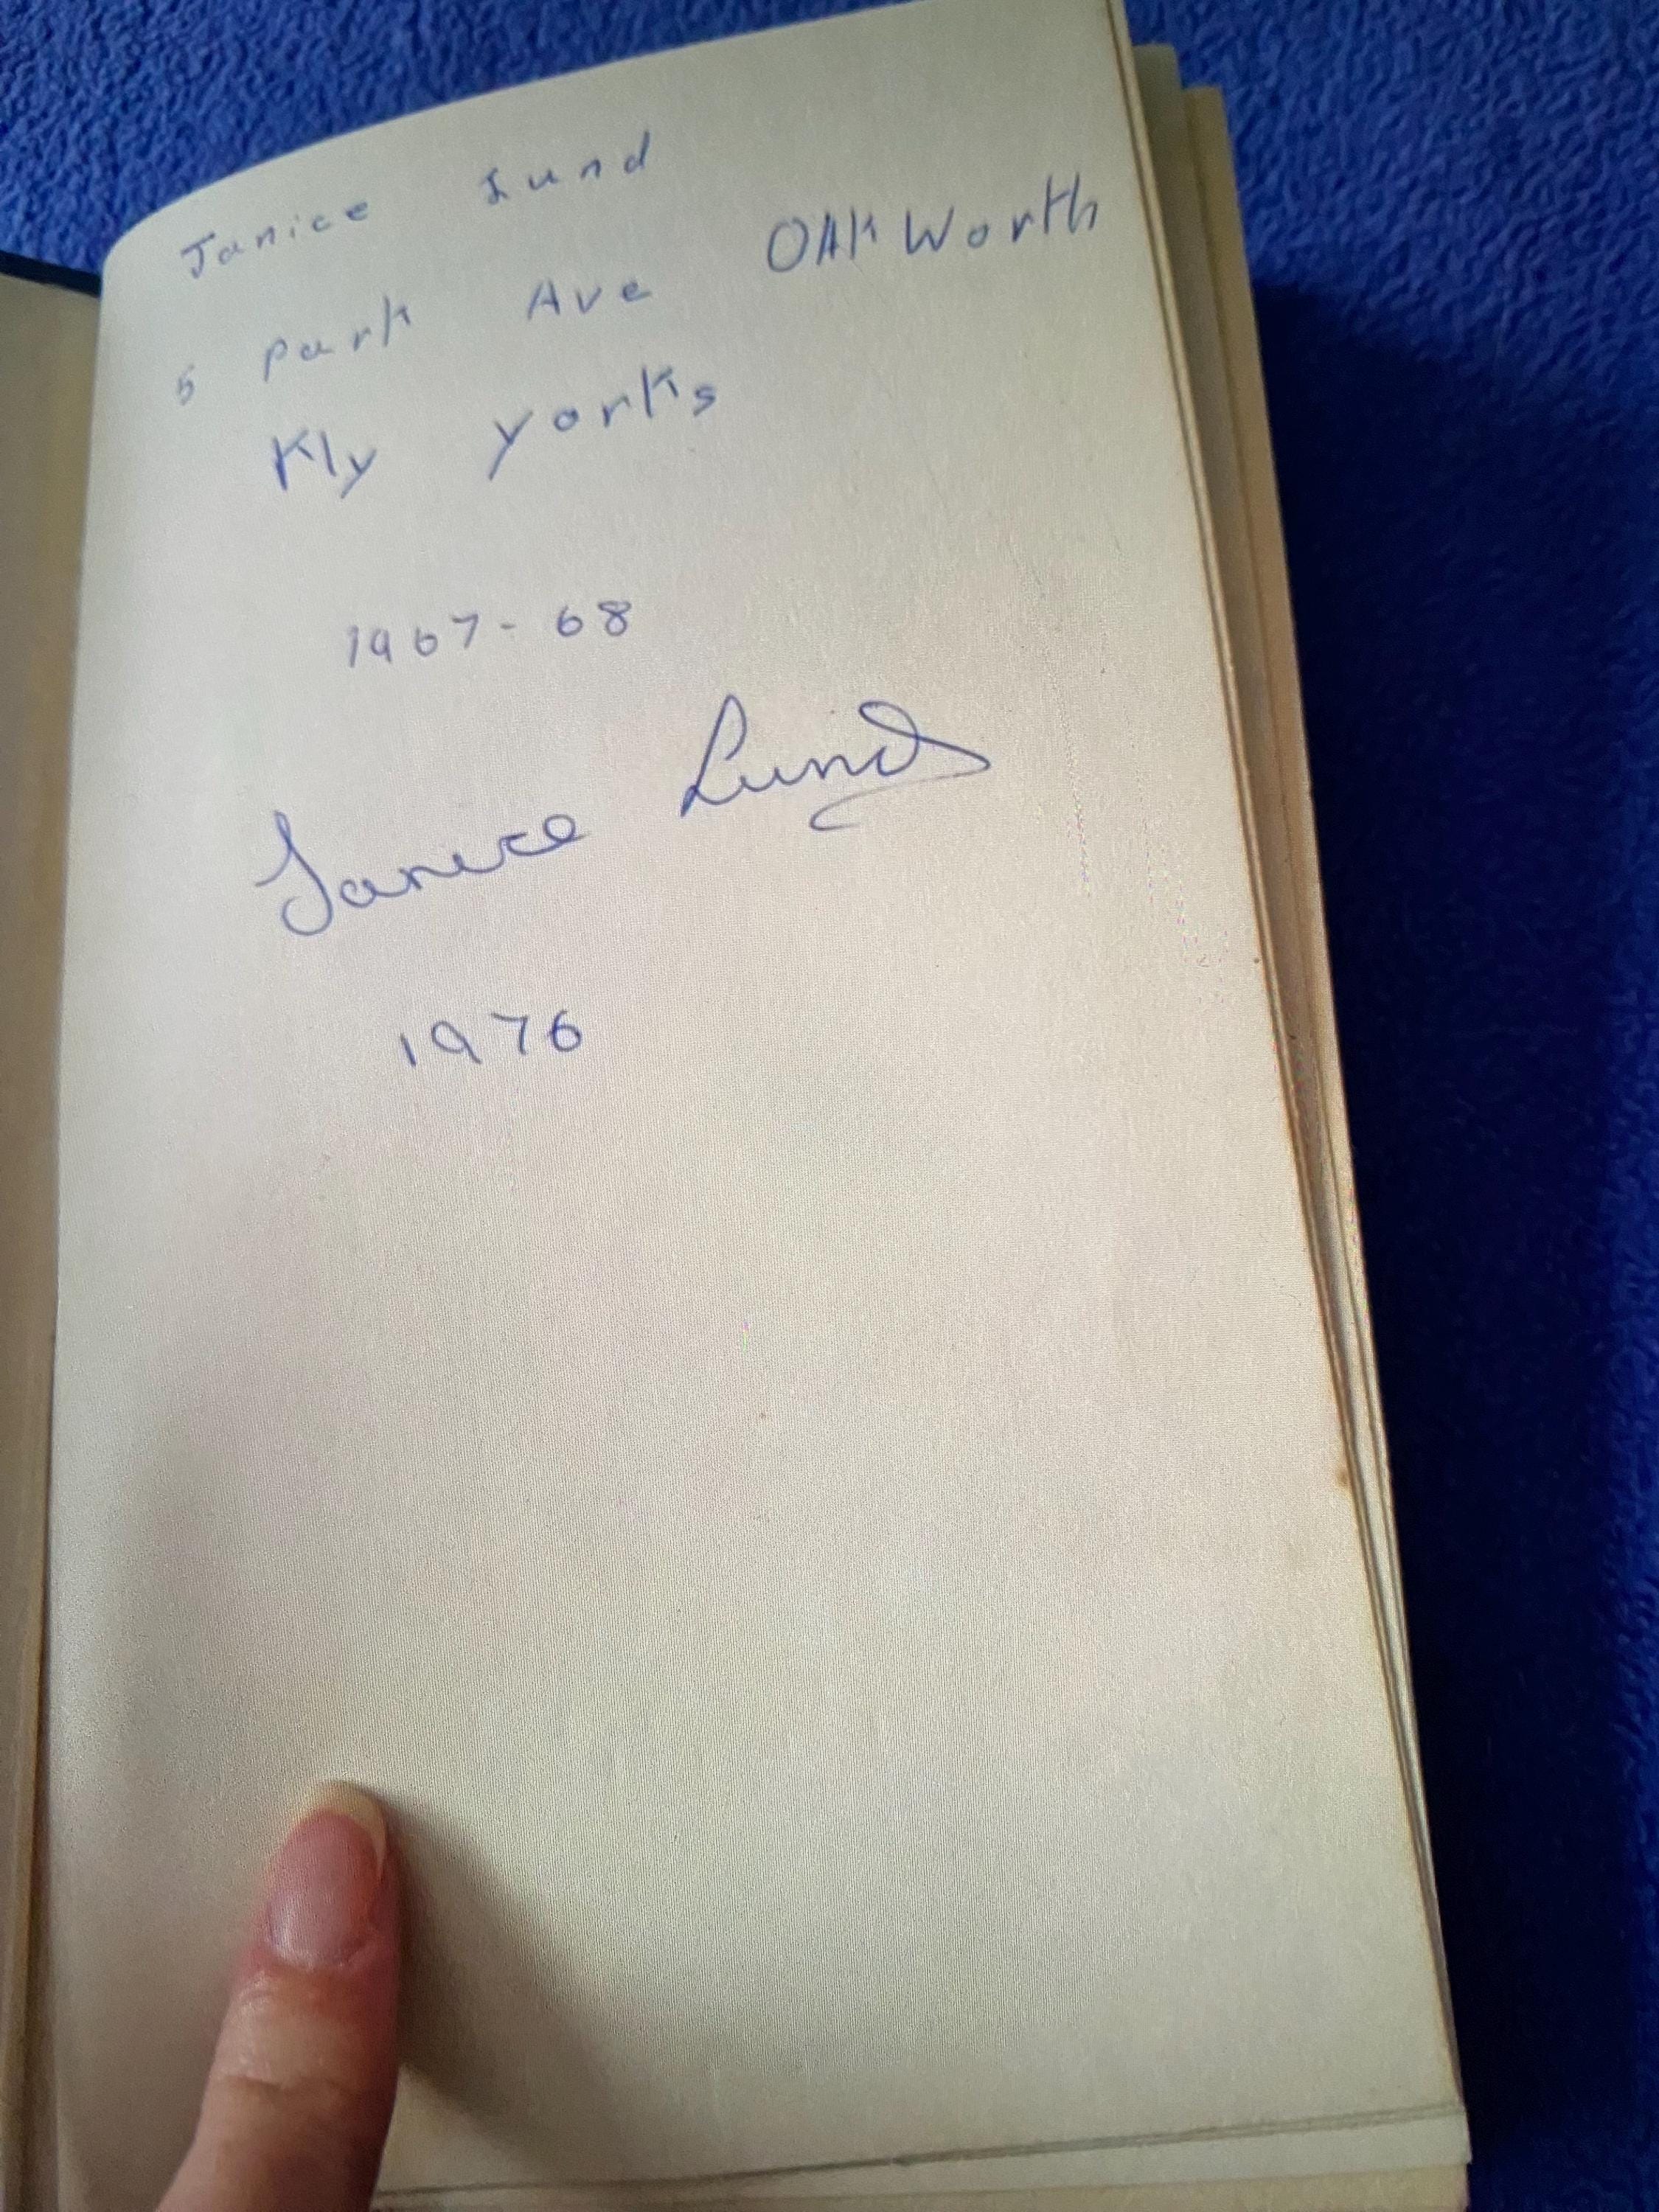 Janice Lund
5 Park Ave OAKWorth
Kly yorks
1967-68
Janice Lund
1976